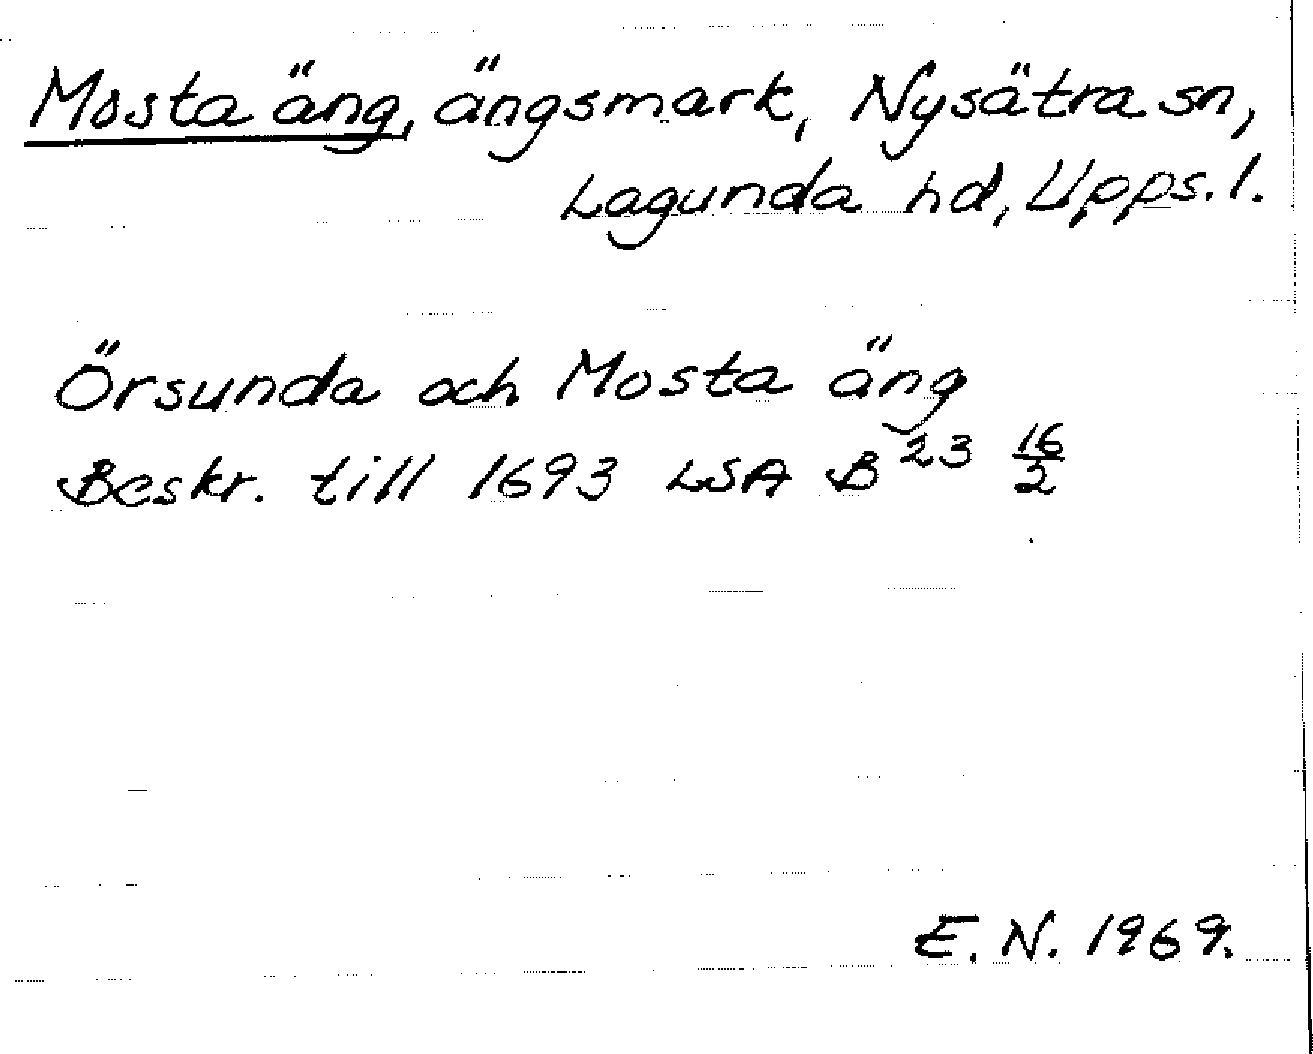 Mosta äng, ängsmark, Nysätra sn,
Lagunda hd, Upps. l.
Örsunda och Mosta äng
Beskr. till 1693 LSA B²³ 16/2
E. N. 1969.